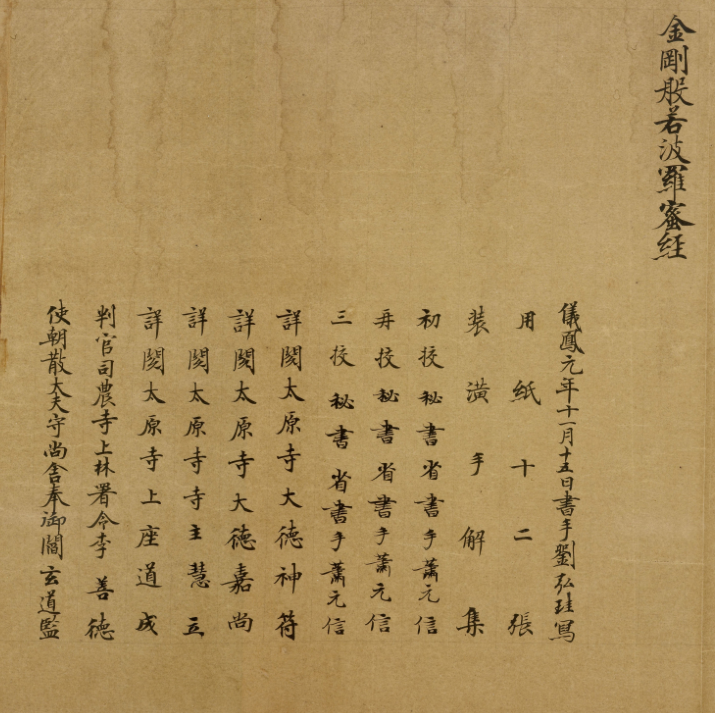 金剛般若波羅蜜經
儀鳳元年十一月十五日書手劉弘珪寫
用紙十二張
装潢手解集
初挍秘書省書手蕭元信
再挍秘書省書手蕭元信
三挍秘書省書手蕭元信
詳閱太原寺大德神苻
詳閱太原寺大德嘉尚
詳閱太原寺寺主慧立
詳閱太原寺上座道成
判官司農寺上林署令李善德
使朝散大夫守尚舍奉御閻玄道監